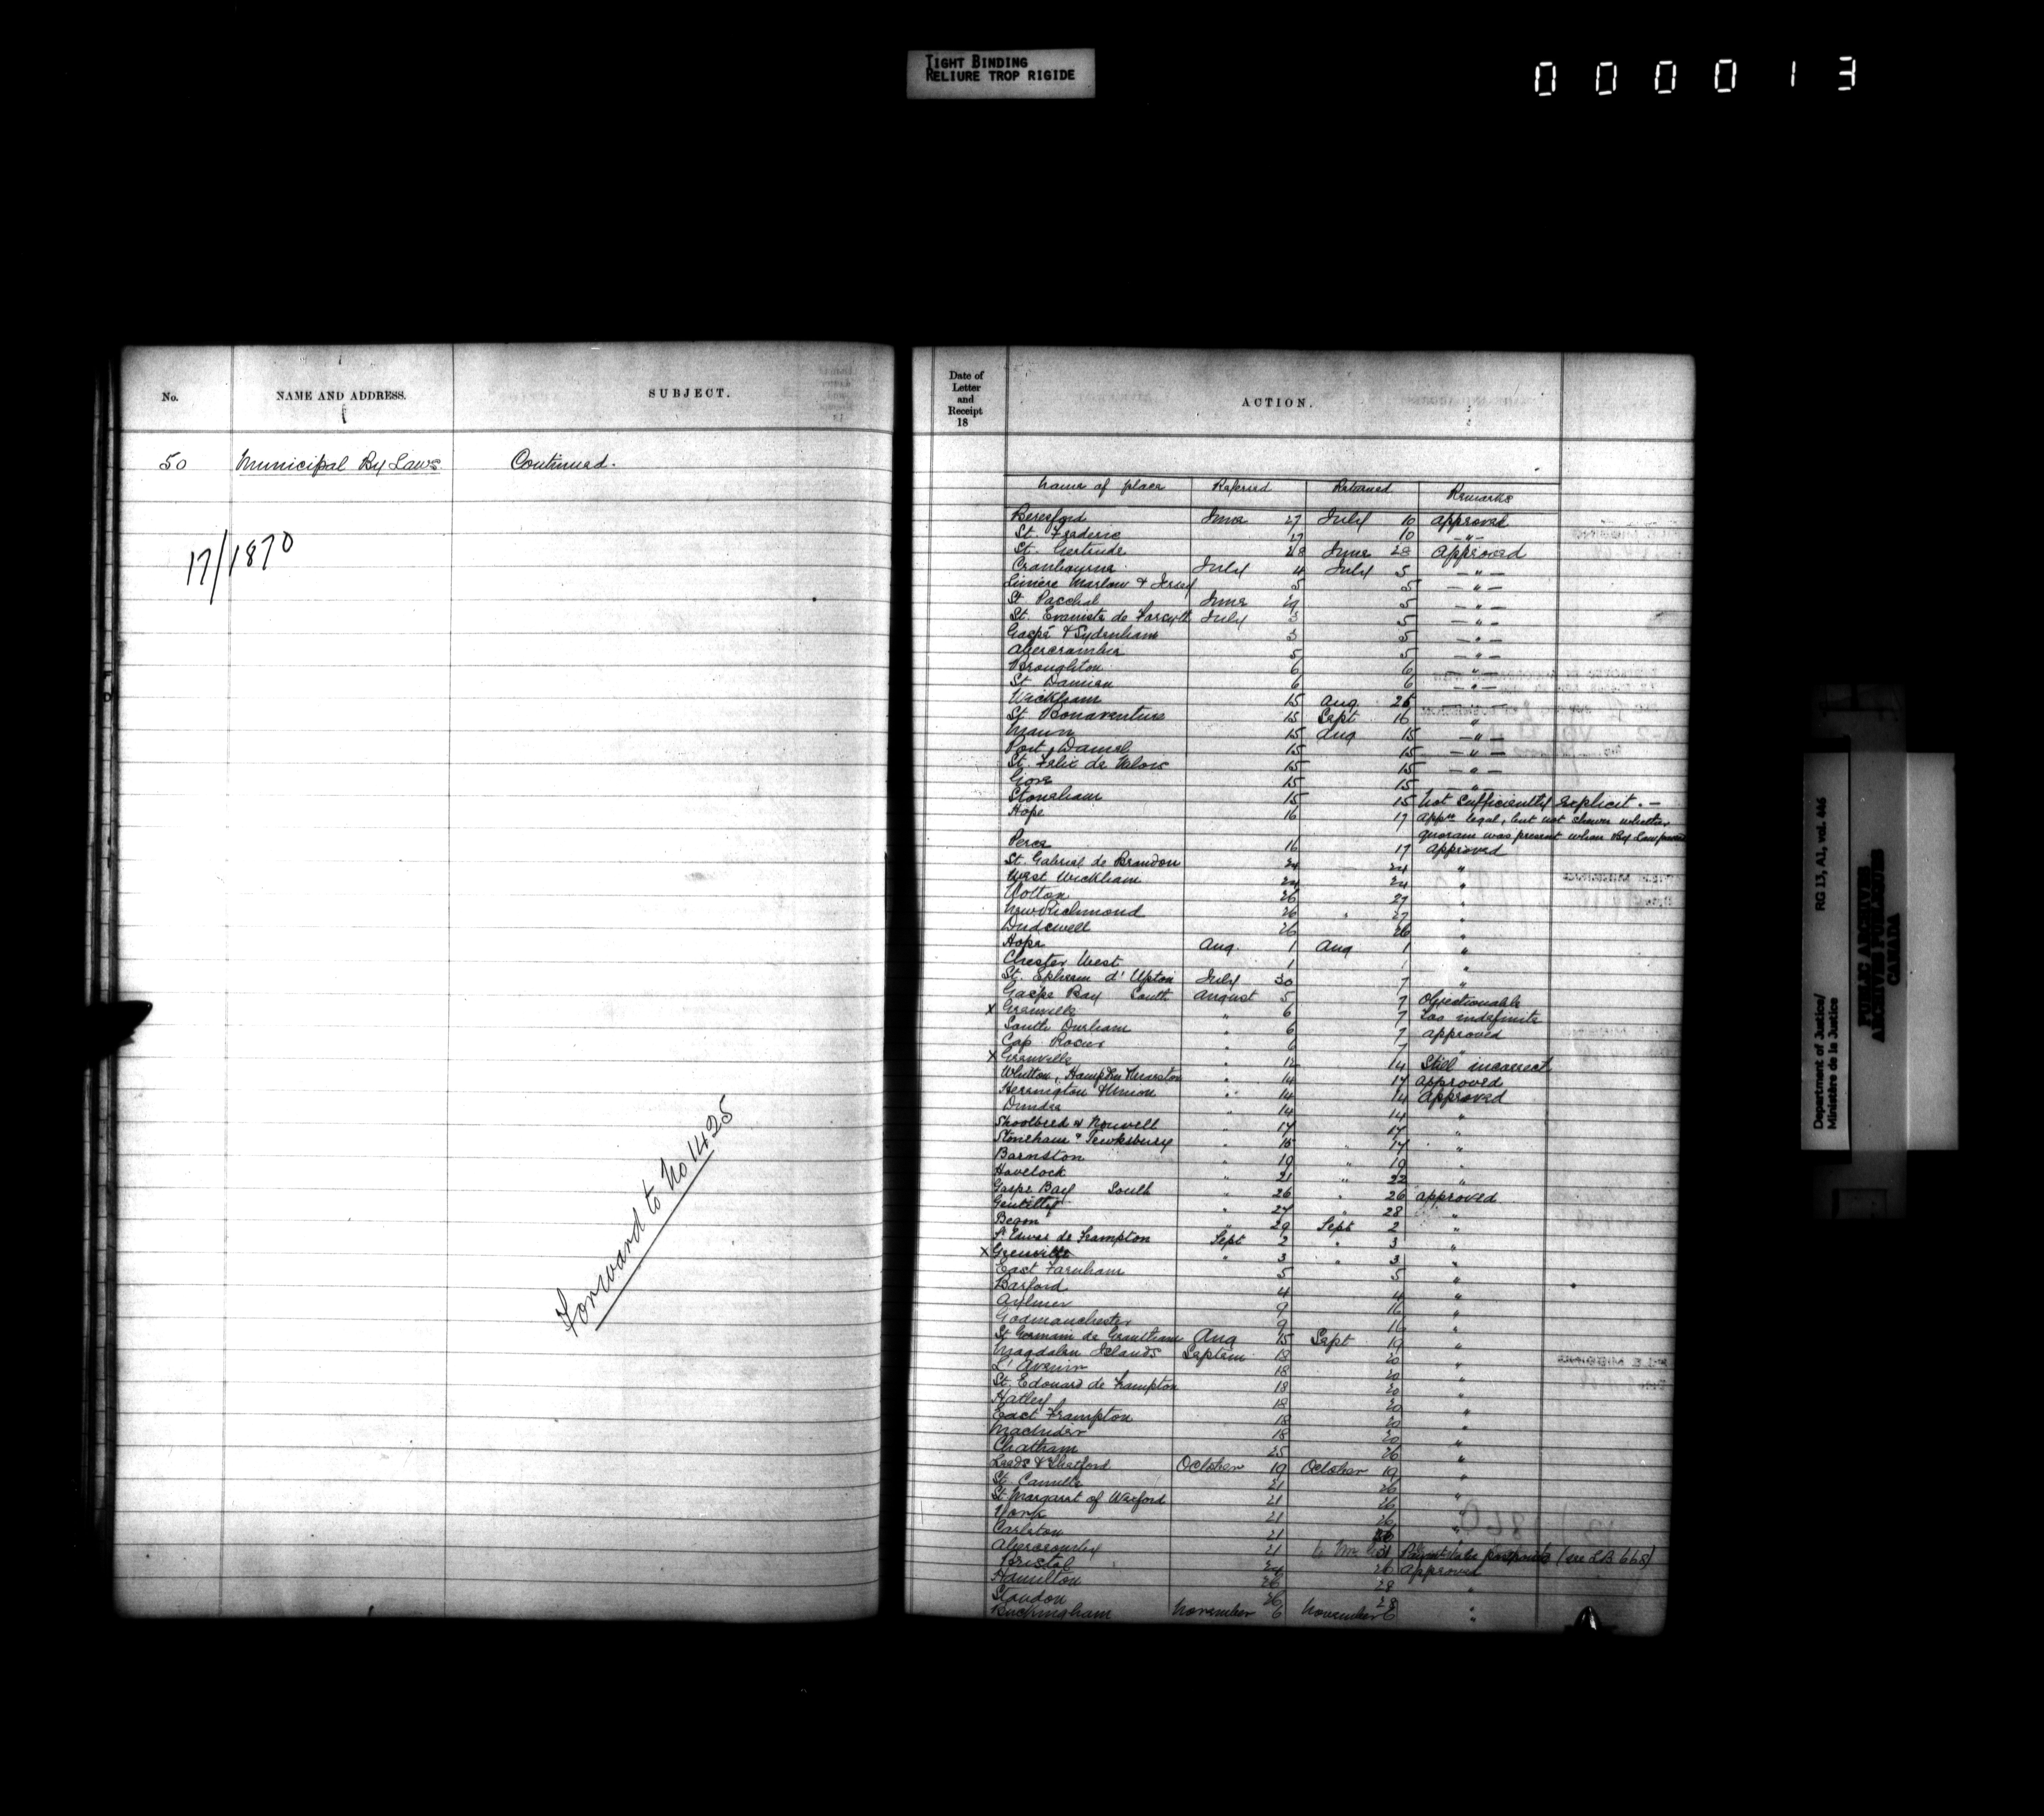 TIGHT BINDING
RELIURE TROP RIGIDE
000013
No. NAME AND ADDRESS. SUBJECT.
50 Municipal By Laws Continued.
17/1870
Forward to No 1425
Date of
Letter
and
Receipt
18
ACTION.
Name of place Referred Returned Remarks
Beresford June 27 July 10 approved
St. Frederic 27 10 -"-
St. Gertrude 28 June 28 Approved
Cranbourne July 4 July 5 -"-
Liniere Marlow & 5 5 -"-
St. Paschal June 29 5 -"-
St. Evariste de Forsyth July 3 5 -"-
Gaspé & Sydenham 3 5 -"-
Abercrombie 5 5 -"-
Broughton 6 6 -"-
St. Damien 6 6 -"-
Wickham 15 Aug. 26
St. Bonaventure 15 Sept 16 "
Mann 15 Aug 15 -"-
Port Daniel 15 15 -"-
St. Felix de Valois 15 15 -"-
Gore 15 15 "
Stoneham 15 15 Not Sufficiently explicit. -
Hope 16 17 legal, but not shown whether
quorum was present when By Law passed
Perce 16 17 Approved
St. Gabriel de Brandon 24 24 "
West Wickham 24 24 "
Wotton 26 27 "
New Richmond 26 " 27 "
Dudswell 26 26 "
Hope Aug. 1 Aug 1 "
Chester West 1 "
St. Ephrem d'Upton July 30 7 "
Gaspe Bay South August 5 7 Objectionable
x Grenville " 6 7 Too indefinite
South Durham " 6 7 approved
Cap Rosier " 6 7 "
x Grenville " 12 14 Still incorrect
Whitton, Hampden Marston " 14 17 approved
Herrington & Union " 14 14 Approved
Dundee " 14 14 "
Shoolbred & Nouvell " 17 17 "
Stoneham & Tewkesbury " 15 " 17 "
Barnston " 19 " 19 "
Havelock " 21 " 22 "
Gaspe Bay South " 26 " 26 approved
Gentilly " 27 " 28 "
Begon " 29 Sept 2 "
St. Edwar de Frampton Sept 2 " 3 "
x Grenville " 3 " 3 "
East Farnham 5 5 "
Barford 4 4 "
Aylmer 9 16 "
Godmanchester 9 16 "
St Germain de Grantham Aug 15 Sept 19 "
Magdalen Islands Septem 18 20 "
L'Avenir 18 20 "
St. Edouard de Frampton 18 20 "
Hatley 18 20 "
East Frampton 18 20 "
Macnider 18 20 "
Chatham 25 26 "
Leeds & Thetford October 19 October 19 "
St. Camille 21 26 "
St Margaret of Wexford 21 26 "
York 21 26 "
Carleton 21 26 "
Abercromby 21 (see LB 668)
Bristol 24 26 Approved
Hamilton 26 28 "
Standon 26 28 "
Buckingham November 6 November 6 "
Department of Justice/
Ministère de la Justice
RG 13, A1, vol. 446
PUBLIC ARCHIVES
ARCHIVES PUBLIQUES
CANADA